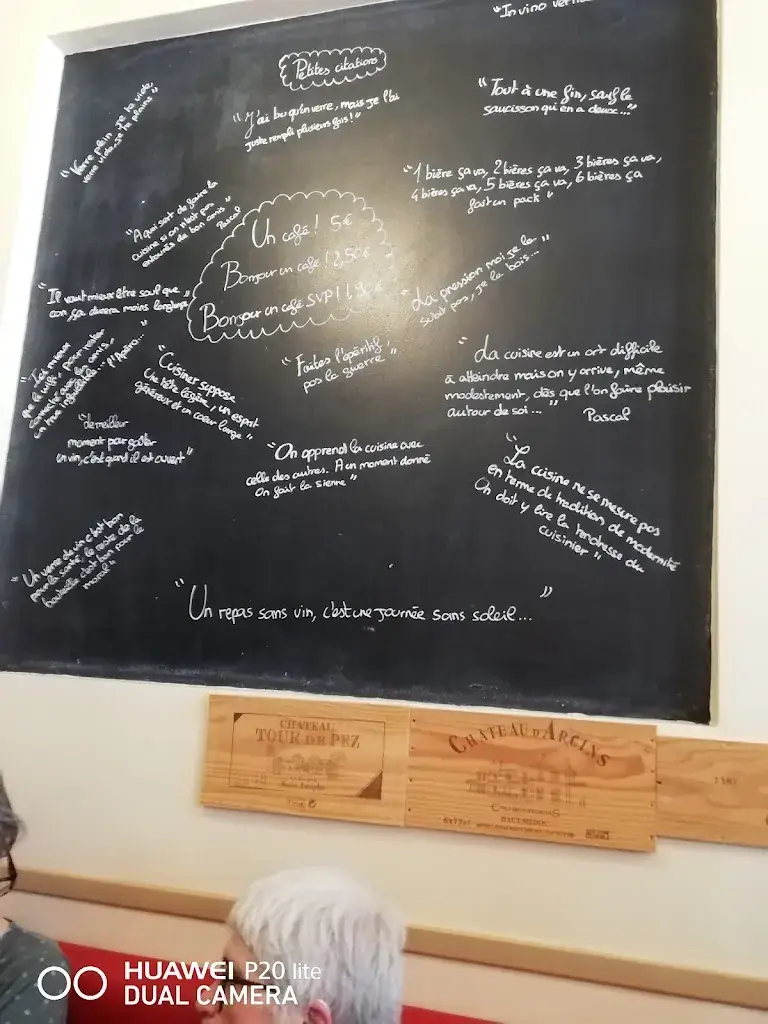 "In vino
Petites citations
"Verre plein je te vide,
verre vide je te plains"
"J'ai bu qu'un verre, mais je l'ai
juste rempli plusieurs fois!"
"Tout à une fin, sauf le
saucisson qui en a deux..."
"1 bière ça va, 2 bières ça va, 3 bières ça va,
4 bières ça va, 5 bières ça va, 6 bières ça
fait un pack"
"A quoi sert de faire la
cuisine si on n'est pas
entourés de bons amis"
Pascal
Un café! 5€
Bonjour un café! 2,50€
Bonjour un café SVP! 1,90€
"Il vaut mieux être soul que
con, ça durera moins longtemps"
"La pression moi je la
subit pas, je la bois..."
que le wifi pour rester
connecté avec les amis,
un truc l'Apéro..."
"Cuisiner suppose
Une tête légère, un esprit
généreux et un coeur large"
"Faites l'apéritif
pas la guerre"
"La cuisine est un art difficile
à atteindre mais on y arrive, même
modestement, dès que l'on faire plaisir
autour de soi..."
Pascal
"le meilleur
moment pour goûter
un vin, c'est quand il est ouvert"
"On apprend la cuisine avec
celle des autres. A un moment donné
On fait la sienne"
"La cuisine ne se mesure pas
en terme de tradition de modernité
On doit y lire la tendresse du
cuisinier"
"Un verre de vin c'est bon
pour la santé, le reste de la
bouteille c'est bon pour le
moral"
"Un repas sans vin, c'est une journée sans soleil..."
CHATEAU
TOUR DE PEZ
CHATEAU D'ARCINS
HAUT-MEDOC
HUAWEI P20 lite
DUAL CAMERA